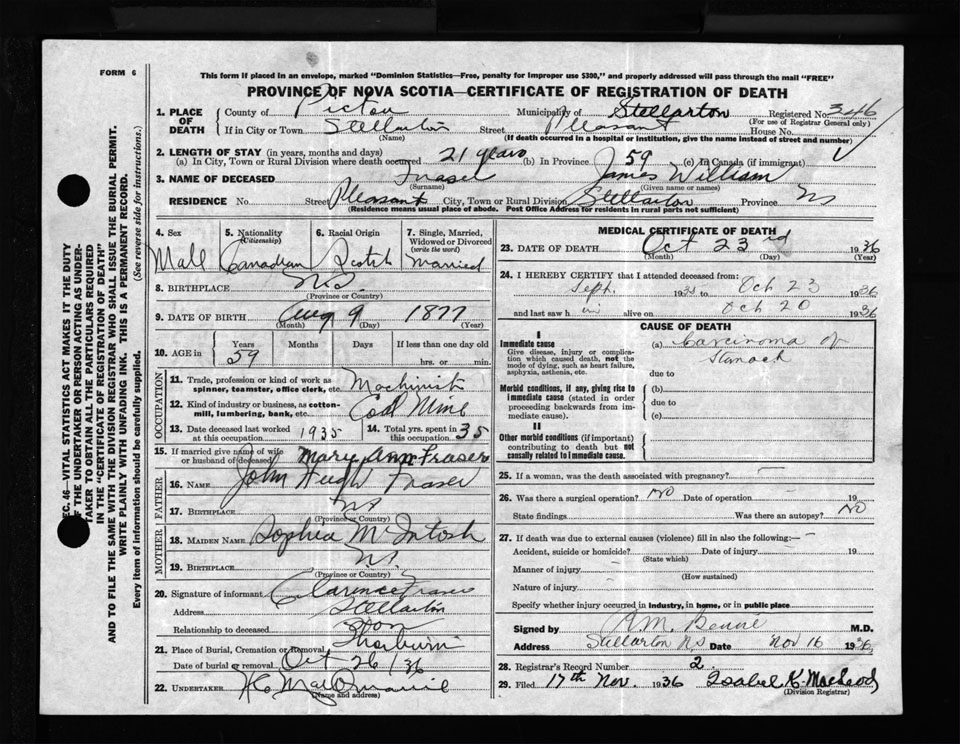 FORM 6
This form if placed in an envelope, marked "Dominion Statistics—Free, penalty for improper use $300," and properly addressed will pass through the mail "FREE"
PROVINCE OF NOVA SCOTIA—CERTIFICATE OF REGISTRATION OF DEATH
1. PLACE OF DEATH
County of Pictou Municipality of Stellarton Registered No. 346
(For use of Registrar General only)
If in City or Town Stellarton Street Pleasant House No.
(Name) (If death occurred in a hospital or institution, give the name instead of street and number)
2. LENGTH OF STAY (in years, months and days)
(a) In City, Town or Rural Division where death occurred 21 years (b) In Province 59 (c) In Canada (if immigrant)
3. NAME OF DECEASED Fraser James William
(Surname) (Given name or names)
RESIDENCE No. Street Pleasant City, Town or Rural Division Stellarton Province NS
(Residence means usual place of abode. Post Office Address for residents in rural parts not sufficient)
4. Sex 5. Nationality (Citizenship) 6. Racial Origin 7. Single, Married, Widowed or Divorced (write the word)
Male Canadian Scotch Married
8. BIRTHPLACE N.S.
(Province or Country)
9. DATE OF BIRTH Aug 9 1877
(Month) (Day) (Year)
10. AGE in Years Months Days If less than one day old
59 hrs. or min.
OCCUPATION
11. Trade, profession or kind of work as spinner, teamster, office clerk, etc. Machinist
12. Kind of industry or business, as cotton-mill, lumbering, bank, etc. Coal Mine
13. Date deceased last worked at this occupation 1935 14. Total yrs. spent in this occupation 35
15. If married give name of wife or husband of deceased Mary Ann Fraser
FATHER
16. NAME John Hugh Fraser
17. BIRTHPLACE NS
(Province or Country)
MOTHER
18. MAIDEN NAME Sophia McIntosh
19. BIRTHPLACE NS.
(Province or Country)
20. Signature of informant Clarence Fraser
Address Stellarton
Relationship to deceased Son
21. Place of Burial, Cremation or Removal Thorburn
Date of burial or removal Oct 26/36
22. UNDERTAKER
(Name and address)
MEDICAL CERTIFICATE OF DEATH
23. DATE OF DEATH Oct 23rd 1936
(Month) (Day) (Year)
24. I HEREBY CERTIFY that I attended deceased from:
Sept. 1935 to Oct 23 1936
and last saw him alive on Oct 20 1936
CAUSE OF DEATH
I
Immediate cause
Give disease, injury or complication which caused death, not the mode of dying, such as heart failure, asphyxia, asthenia, etc.
(a) Carcinoma of
Stomach
due to
Morbid conditions, if any, giving rise to immediate cause (stated in order proceeding backwards from immediate cause).
(b)
due to
(c)
II
Other morbid conditions (if important) contributing to death but not causally related to immediate cause.
25. If a woman, was the death associated with pregnancy? —
26. Was there a surgical operation? NO Date of operation — 19
State findings Was there an autopsy? NO
27. If death was due to external causes (violence) fill in also the following:—
Accident, suicide or homicide? Date of injury 19
(State which)
Manner of injury
(How sustained)
Nature of injury
Specify whether injury occurred in industry, in home, or in public place
Signed by M.D.
Address Stellarton N.S Date Nov 16 1936
28. Registrar's Record Number 2.
29. Filed 17th Nov. 1936 Isabel K. MacLeod
(Division Registrar)
SEC. 46—VITAL STATISTICS ACT MAKES IT THE DUTY
OF THE UNDERTAKER OR PERSON ACTING AS UNDER-
TAKER TO OBTAIN ALL THE PARTICULARS REQUIRED
IN THE "CERTIFICATE OF REGISTRATION OF DEATH"
AND TO FILE THE SAME WITH THE DIVISION REGISTRAR WHO SHALL ISSUE THE BURIAL PERMIT.
WRITE PLAINLY WITH UNFADING INK. THIS IS A PERMANENT RECORD.
Every item of information should be carefully supplied. (See reverse side for instructions.)